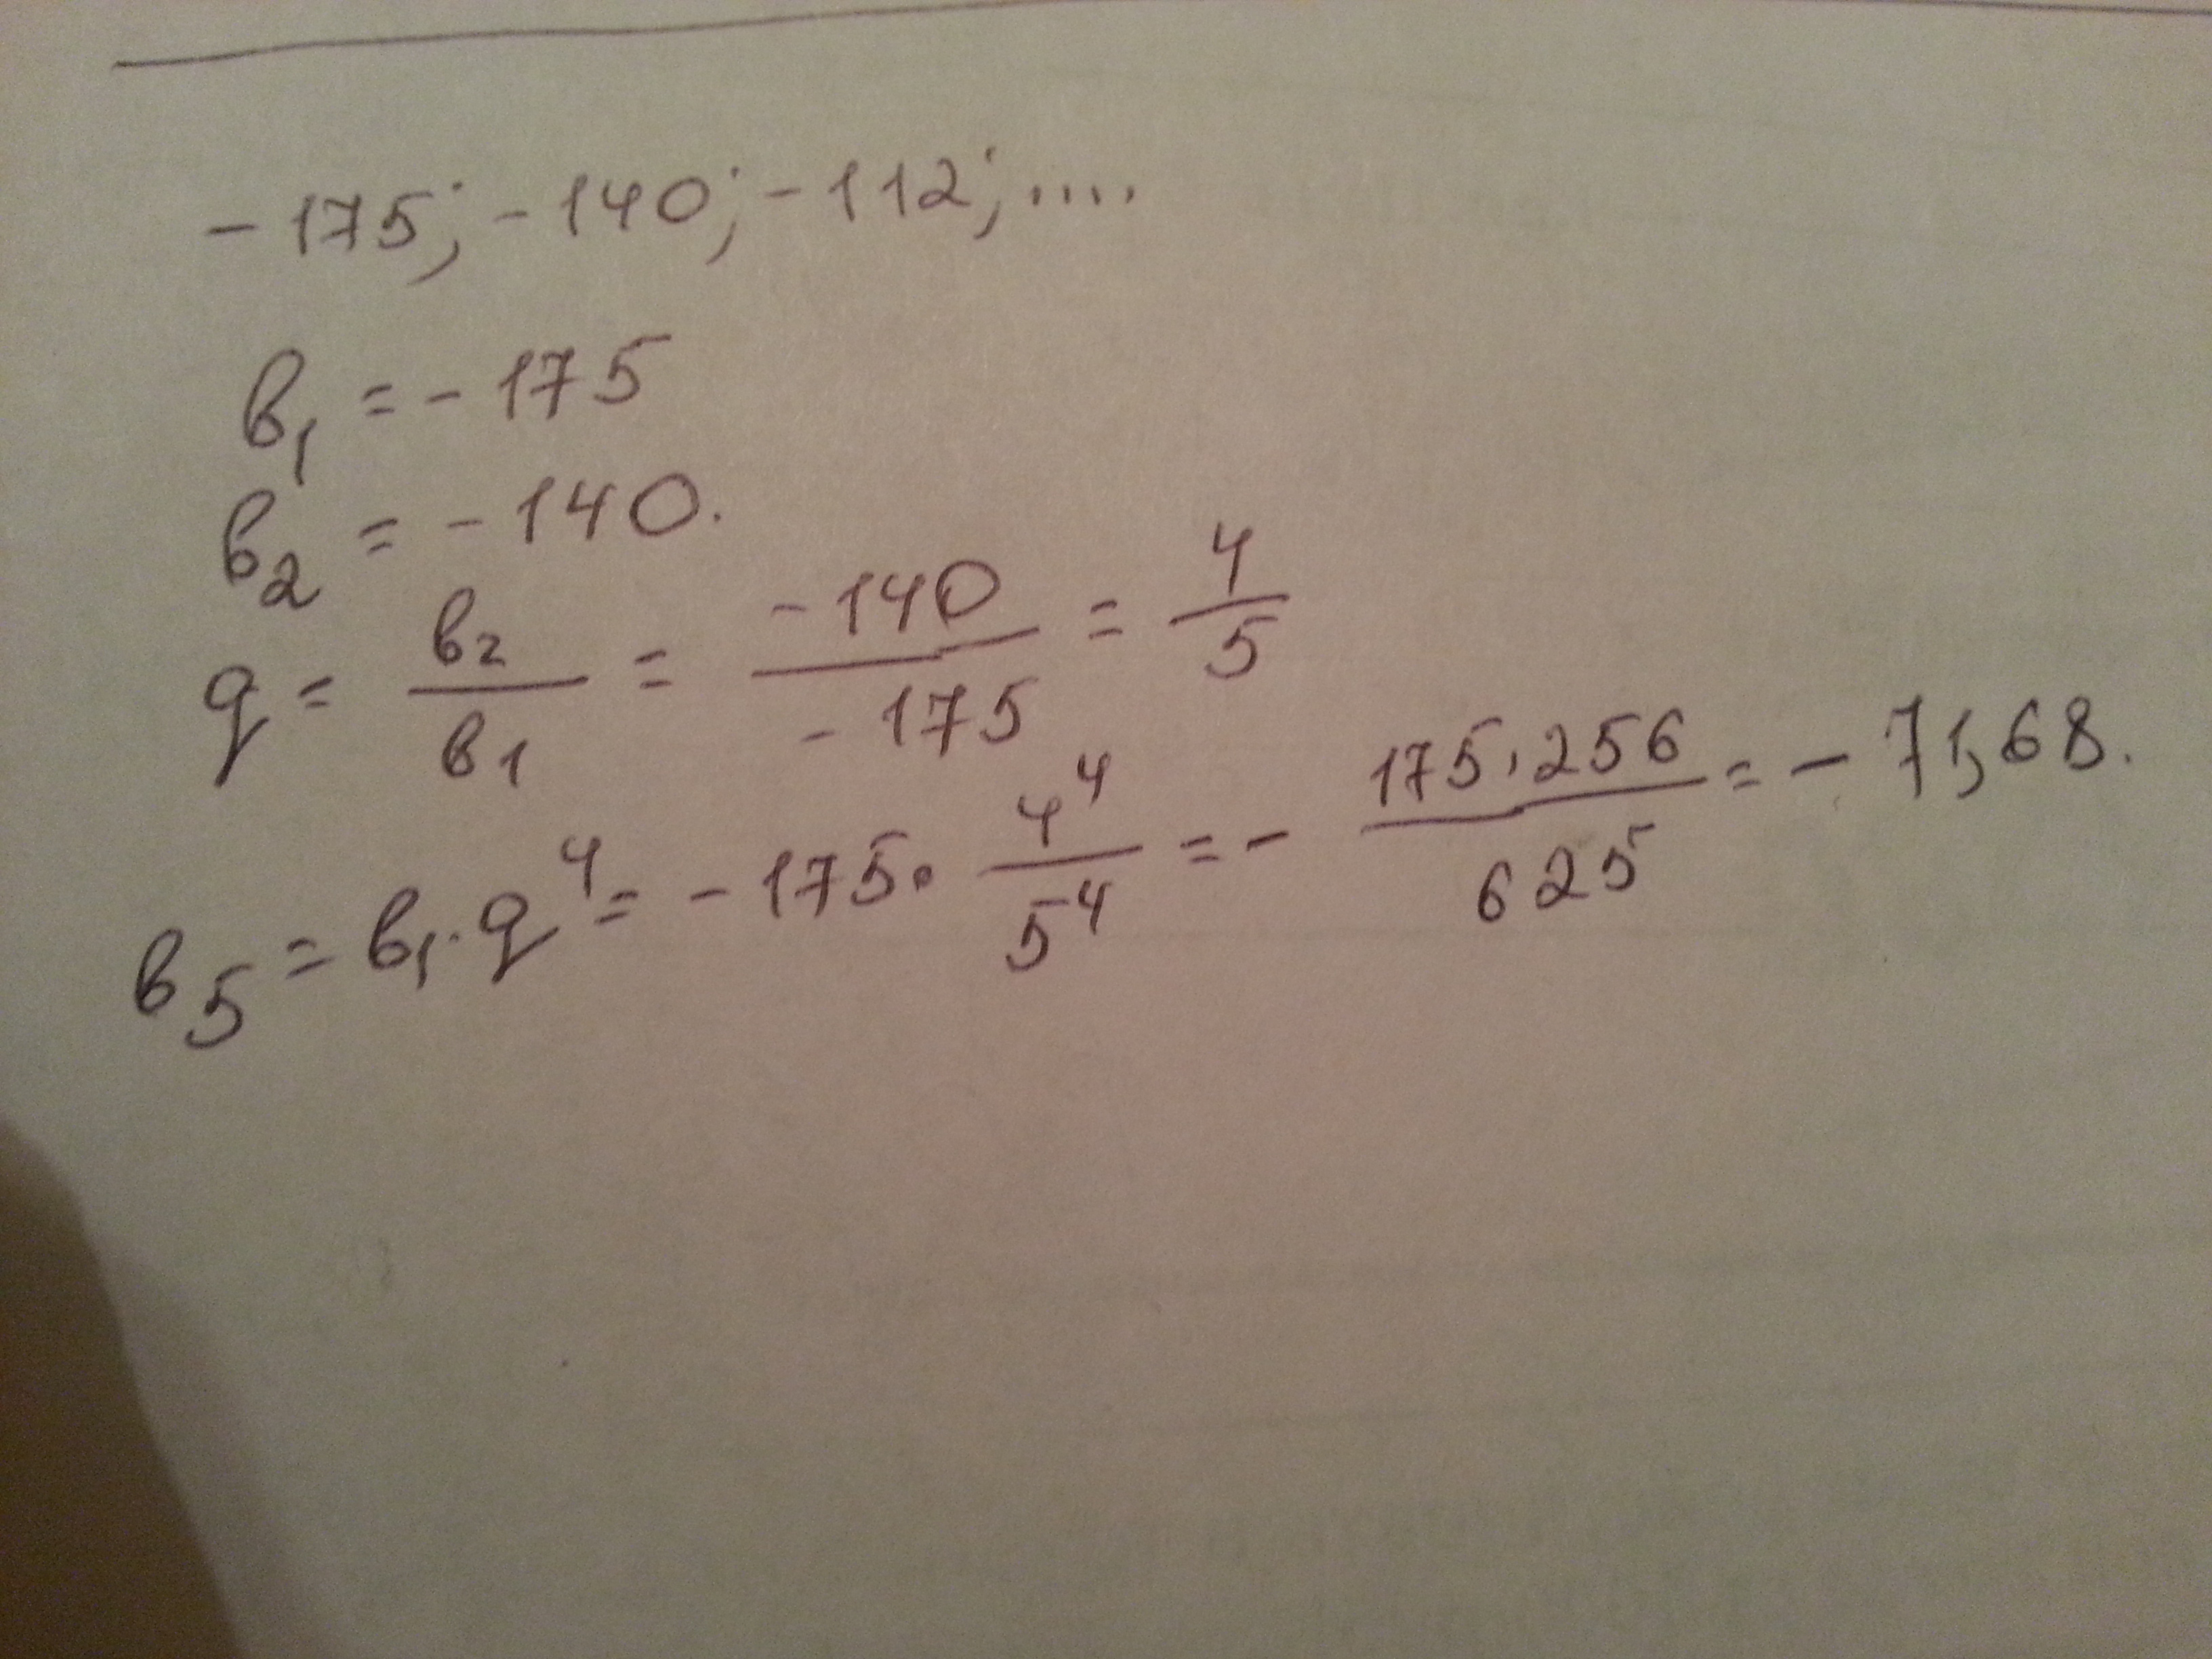 -175; -140; -112; ....
b₁ = -175
b₂ = -140.
q = b₂/b₁ = -140/-175 = 4/5
b₅ = b₁·q⁴ = -175·4⁴/5⁴ = - 175·256/625 = -71,68.